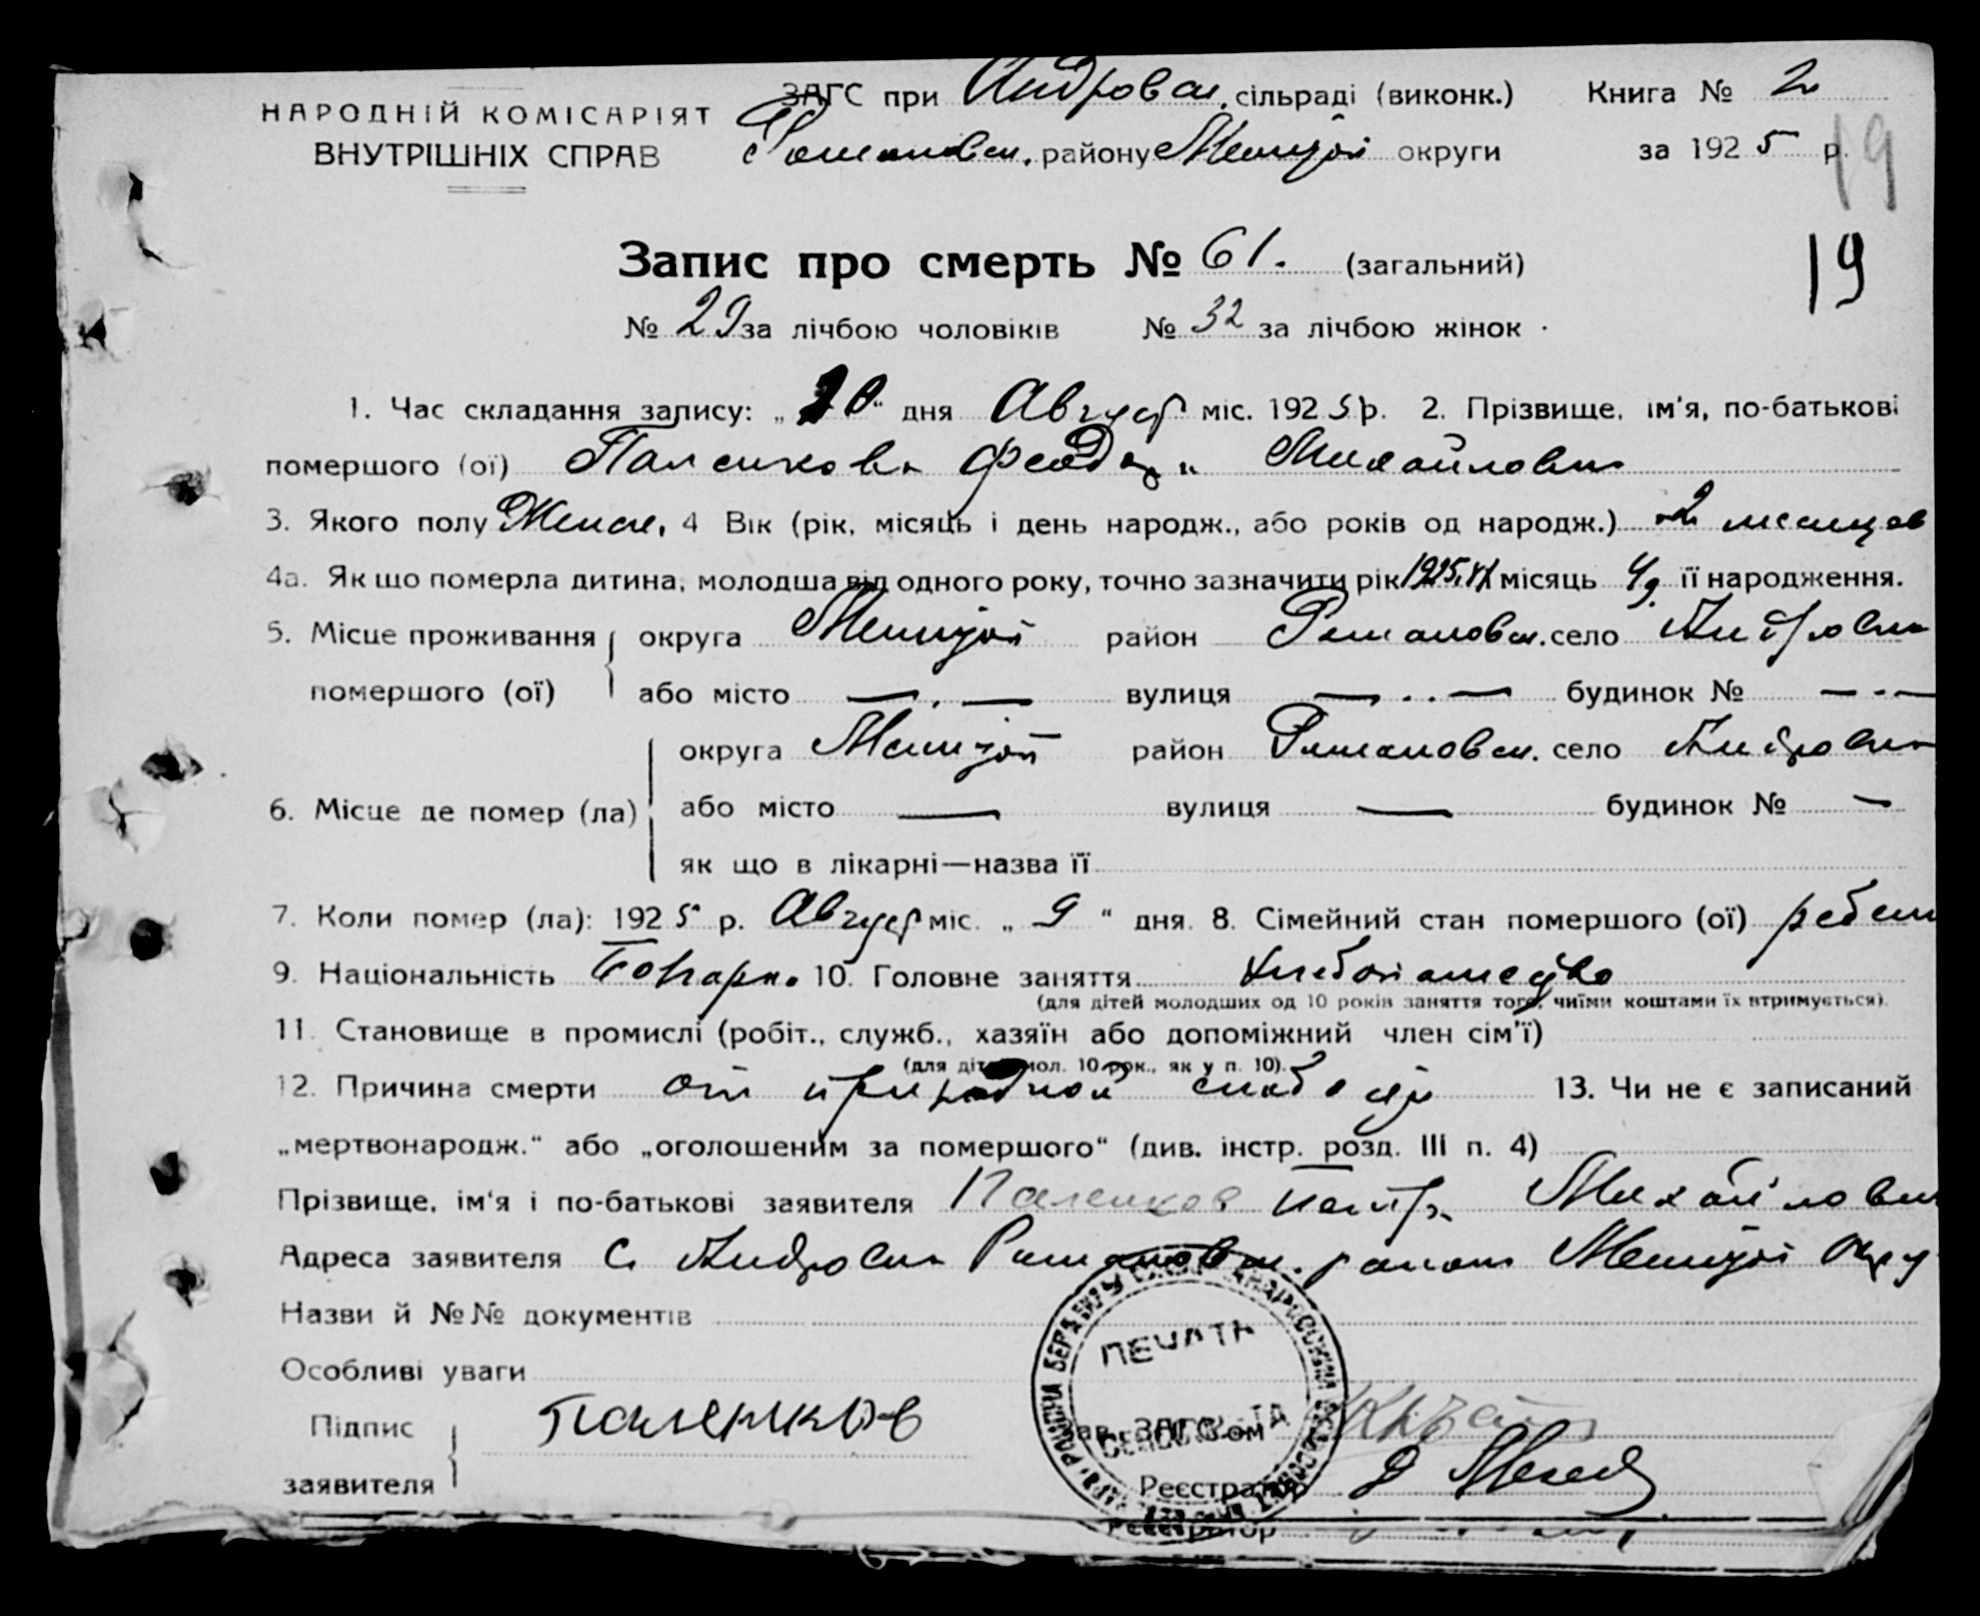 НАРОДНІЙ КОМІСАРІЯТ
ВНУТРІШНІХ СПРАВ
ЗАГС при Андровск. сільраді (виконк.)
Романовск. району Мелитой округи
Книга № 2
за 1925 р.
19
19
Запис про смерть № 61. (загальний)
№ 29 за лічбою чоловіків № 32 за лічбою жінок
1. Час складання запису: „10“ дня Август міс. 1925 р. 2. Прізвище, ім'я, по-батькові
помершого (ої) Паленкова Михайловна
3. Якого полу Женск. 4 Вік (рік, місяць і день народж., або років од народж.) 2 месяцев
4а. Як що померла дитина, молодша від одного року, точно зазначити рік 1925 місяць її народження.
5. Місце проживання помершого (ої)
округа Мелитой район Романовск. село Андровка
або місто — . — вулиця — .. — будинок № — - —
6. Місце де помер (ла)
округа Мелитой район Романовск. село Андровка
або місто — вулиця — будинок № —
як що в лікарні—назва її
7. Коли помер (ла): 1925 р. Август міс. „ 9 “ дня. 8. Сімейний стан помершого (ої) ребен
9. Національність Болгарк. 10. Головне заняття Хлебопашество
(для дітей молодших од 10 років заняття того, чиїми коштами їх втримується).
11. Становище в промислі (робіт., служб., хазяїн або допоміжний член сім'ї)
(для дітей мол. 10 рок., як у п. 10).
12. Причина смерти от природной слабости 13. Чи не є записаний
„мертвонародж.“ або „оголошеним за помершого“ (див. інстр. розд. III п. 4)
Прізвище, ім'я і по-батькові заявителя Паленков Петр Михайлович
Адреса заявителя С. Андровка Романовск. району Мелитой Окру
Назви й №№ документів
Особливі уваги
Підпис заявителя Паленков
ПЕЧАТЬ
Зав. ЗАГС'ом
Реєстратор
Реєстратор